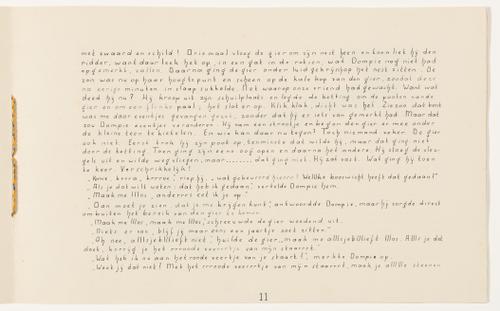 met zwaard en schild! Driemaal vloog de gier om zijn nest heen en toen liet hij den
ridder, want daar leek het op, in een gat in de rotsen, wat Dompie nog niet had
opgemerkt, vallen. Daarna ging de gier onder luid gekrijsch op het nest zitten. De
zon was nu op haar hoogtepunt en scheen op de kale kop van den gier, zoodat deze
na eenige minuten in slaap sukkelde. Net waarop onze vriend had gewacht. Want wat
deed hij nu? Hij kroop uit zijn schuilplaats en legde de ketting om de pooten van de
gier en om een paal; het slot er op. Klik klak, dicht was het. Ziezoo dat beest
was me daar eventjes gevangen gezet, zonder dat hij er iets van gemerkt had. Maar dat
zou Dompie eventjes veranderen. Hij nam een strootje en begon den gier er mee onder
de kleine teen te kietelen. En wie kan daar nu tegen? Toch niemand zeker. De gier
ook niet. Eerst trok hij zijn poot op, tenminste dat wilde hij, maar dat ging niet
door de ketting. Toen ging zijn eene oog open en daarna het andere. Hij sloeg de vleu-
gels uit en wilde weg vliegen, maar......... dat ging niet. Hij zat vast. Wat ging hij toen
te keer. Verschrikkelijk!
"Krrra, krrra, krrraa," riep hij, "wat gebeurrrd hierrr! Welllke boeswicht heeft dat gedaan!"
"Als je dat wilt weten: dat heb ik gedaan," vertelde Dompie hem.
"Maak me lllos, anderrrs eet ik je op."
"Dan moet je zien, dat je me krijgen kunt," antwoordde Dompie, maar hij zorgde direct
om buiten het bereik van den gier te komen.
"Maak me lllos, maak me lllos," schreeuwde de gier woedend uit.
"Niets er van, blijf jij maar eens een jaartje zoet zitten."
"Oh nee, allllsjebllllieft niet," huilde de gier, "maak me allllsjebllllieft lllos. Allls je dat
doet, krrrijg je het rrroode veerrrtje van mijn staarrrt."
"Wat heb ik nu aan het roode veertje van je staart!", merkte Dompie op.
"Weet jij dat niet! Met het rrroode veerrrtje van mijn staarrrt, maak je alllle steenen
11